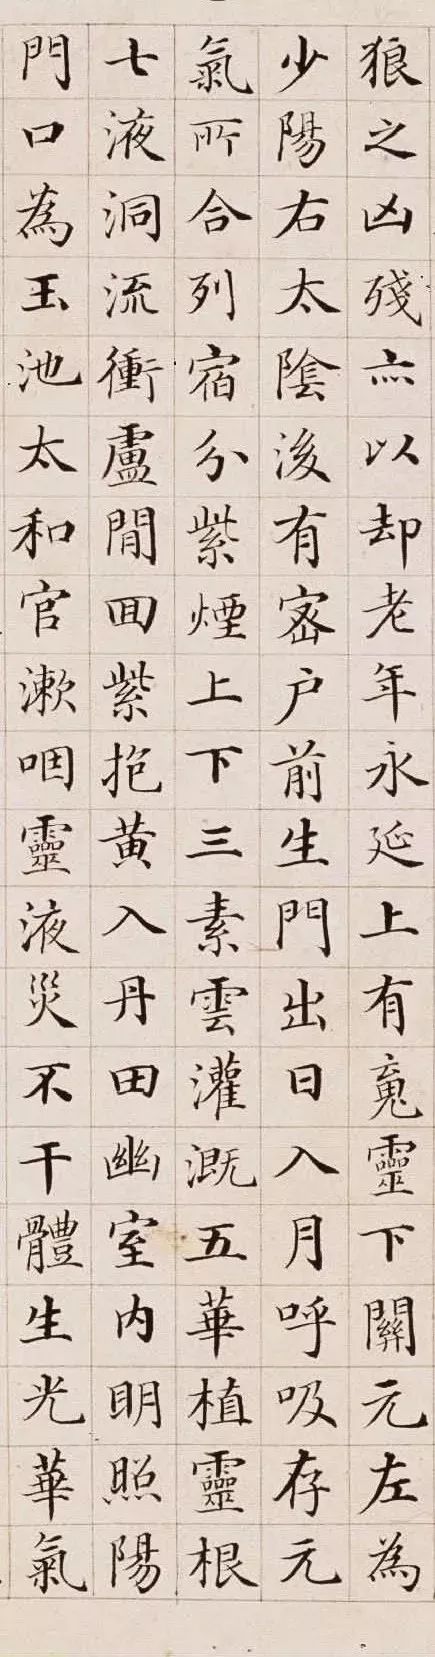 狼之凶殘亦以却老年永延上有䰟靈下關元左為
少陽右太陰後有宻户前生門出日入月呼吸存元
氣所合列宿分紫煙上下三素雲灌溉五華植靈根
七液洞流衝盧間回紫抱黄入丹田幽室内明照陽
門口為玉池太和官漱咽靈液災不干體生光華氣